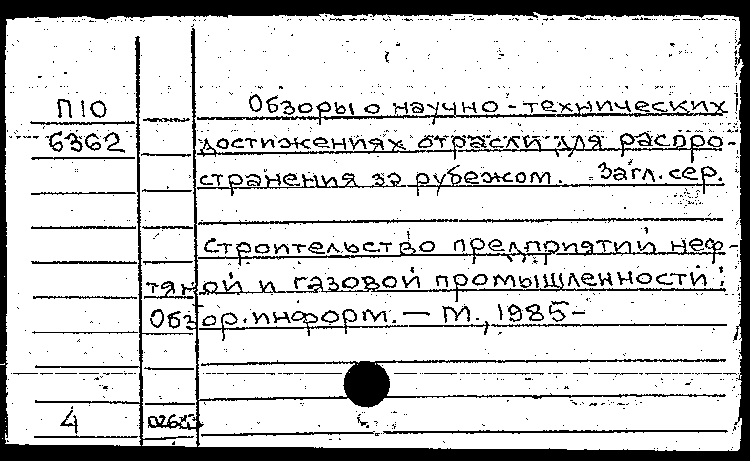 П10
6362
Обзоры о научно-технических
достижениях отрасли для распро-
странения за рубежом. Загл. сер.
Строительство предприятий неф-
тяной и газовой промышленности:
Обзор. информ. — М., 1985-
4